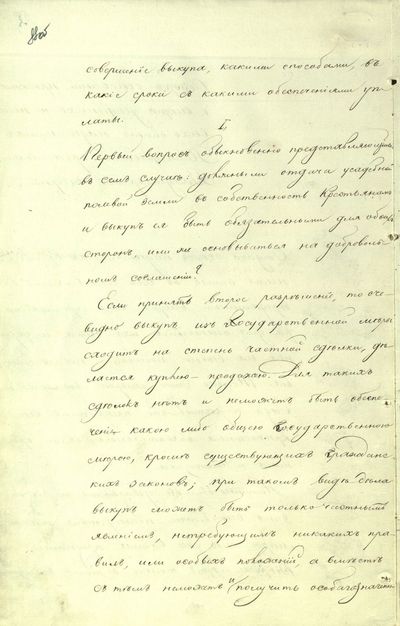 совершенiе выкупа, какими способами, въ
какiе сроки съ какими обеспеченiями уп-
латы.
I.
Первый вопросъ обыкновенно представляющiйся
въ семъ случаѣ: должны ли отдача усадебной
полевой земли въ собственность Крестьянамъ
и выкупъ ея быть обязательными для обоихъ
сторонъ, или же основываться на доброволь-
номъ соглашенiи?
Если принять второе разрѣшенiе, то оче-
видно выкупъ изъ Государственной мѣры
сходитъ на степень частной сдѣлки, дѣ-
лается куплею – продажею. Для такихъ
сдѣлокъ нѣтъ и неможетъ быть обезпе-
ченiя какою либо общею Государственною
мѣрою, кромѣ существующихъ Граждан-
скихъ законовъ; при такомъ видѣ дѣла
выкупъ сможетъ быть только частнымъ
явленiемъ, нетребующимъ никакихъ пра-
вилъ, или особыхъ положенiй, а вмѣстѣ
съ тѣмъ неможетъ и получить особаго значенiя